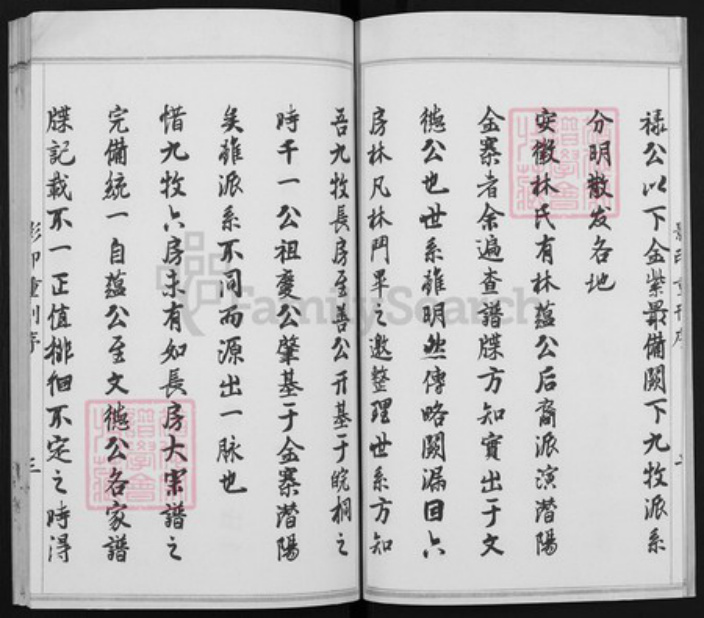 祿公以下金紫最備闕下九牧派系
分明散发各地
安徽林氏有林蕴公后裔派演潜陽
金寨者余遍查譜牒方知實出于文
德公也世系雖明然傳略闕漏因六
房林凡林門畢之邀整理世系方知
吾九牧長房至善公开基于皖桐之
時千一公祖慶公肇基于金寨潜陽
矣雖派系不同而源出一脉也
惜九牧六房未有如長房大宗譜之
完備統一自蕴公至文德公各家譜
牒記載不一正值排徊不定之時得
影印重刊序
三
FamilySearch